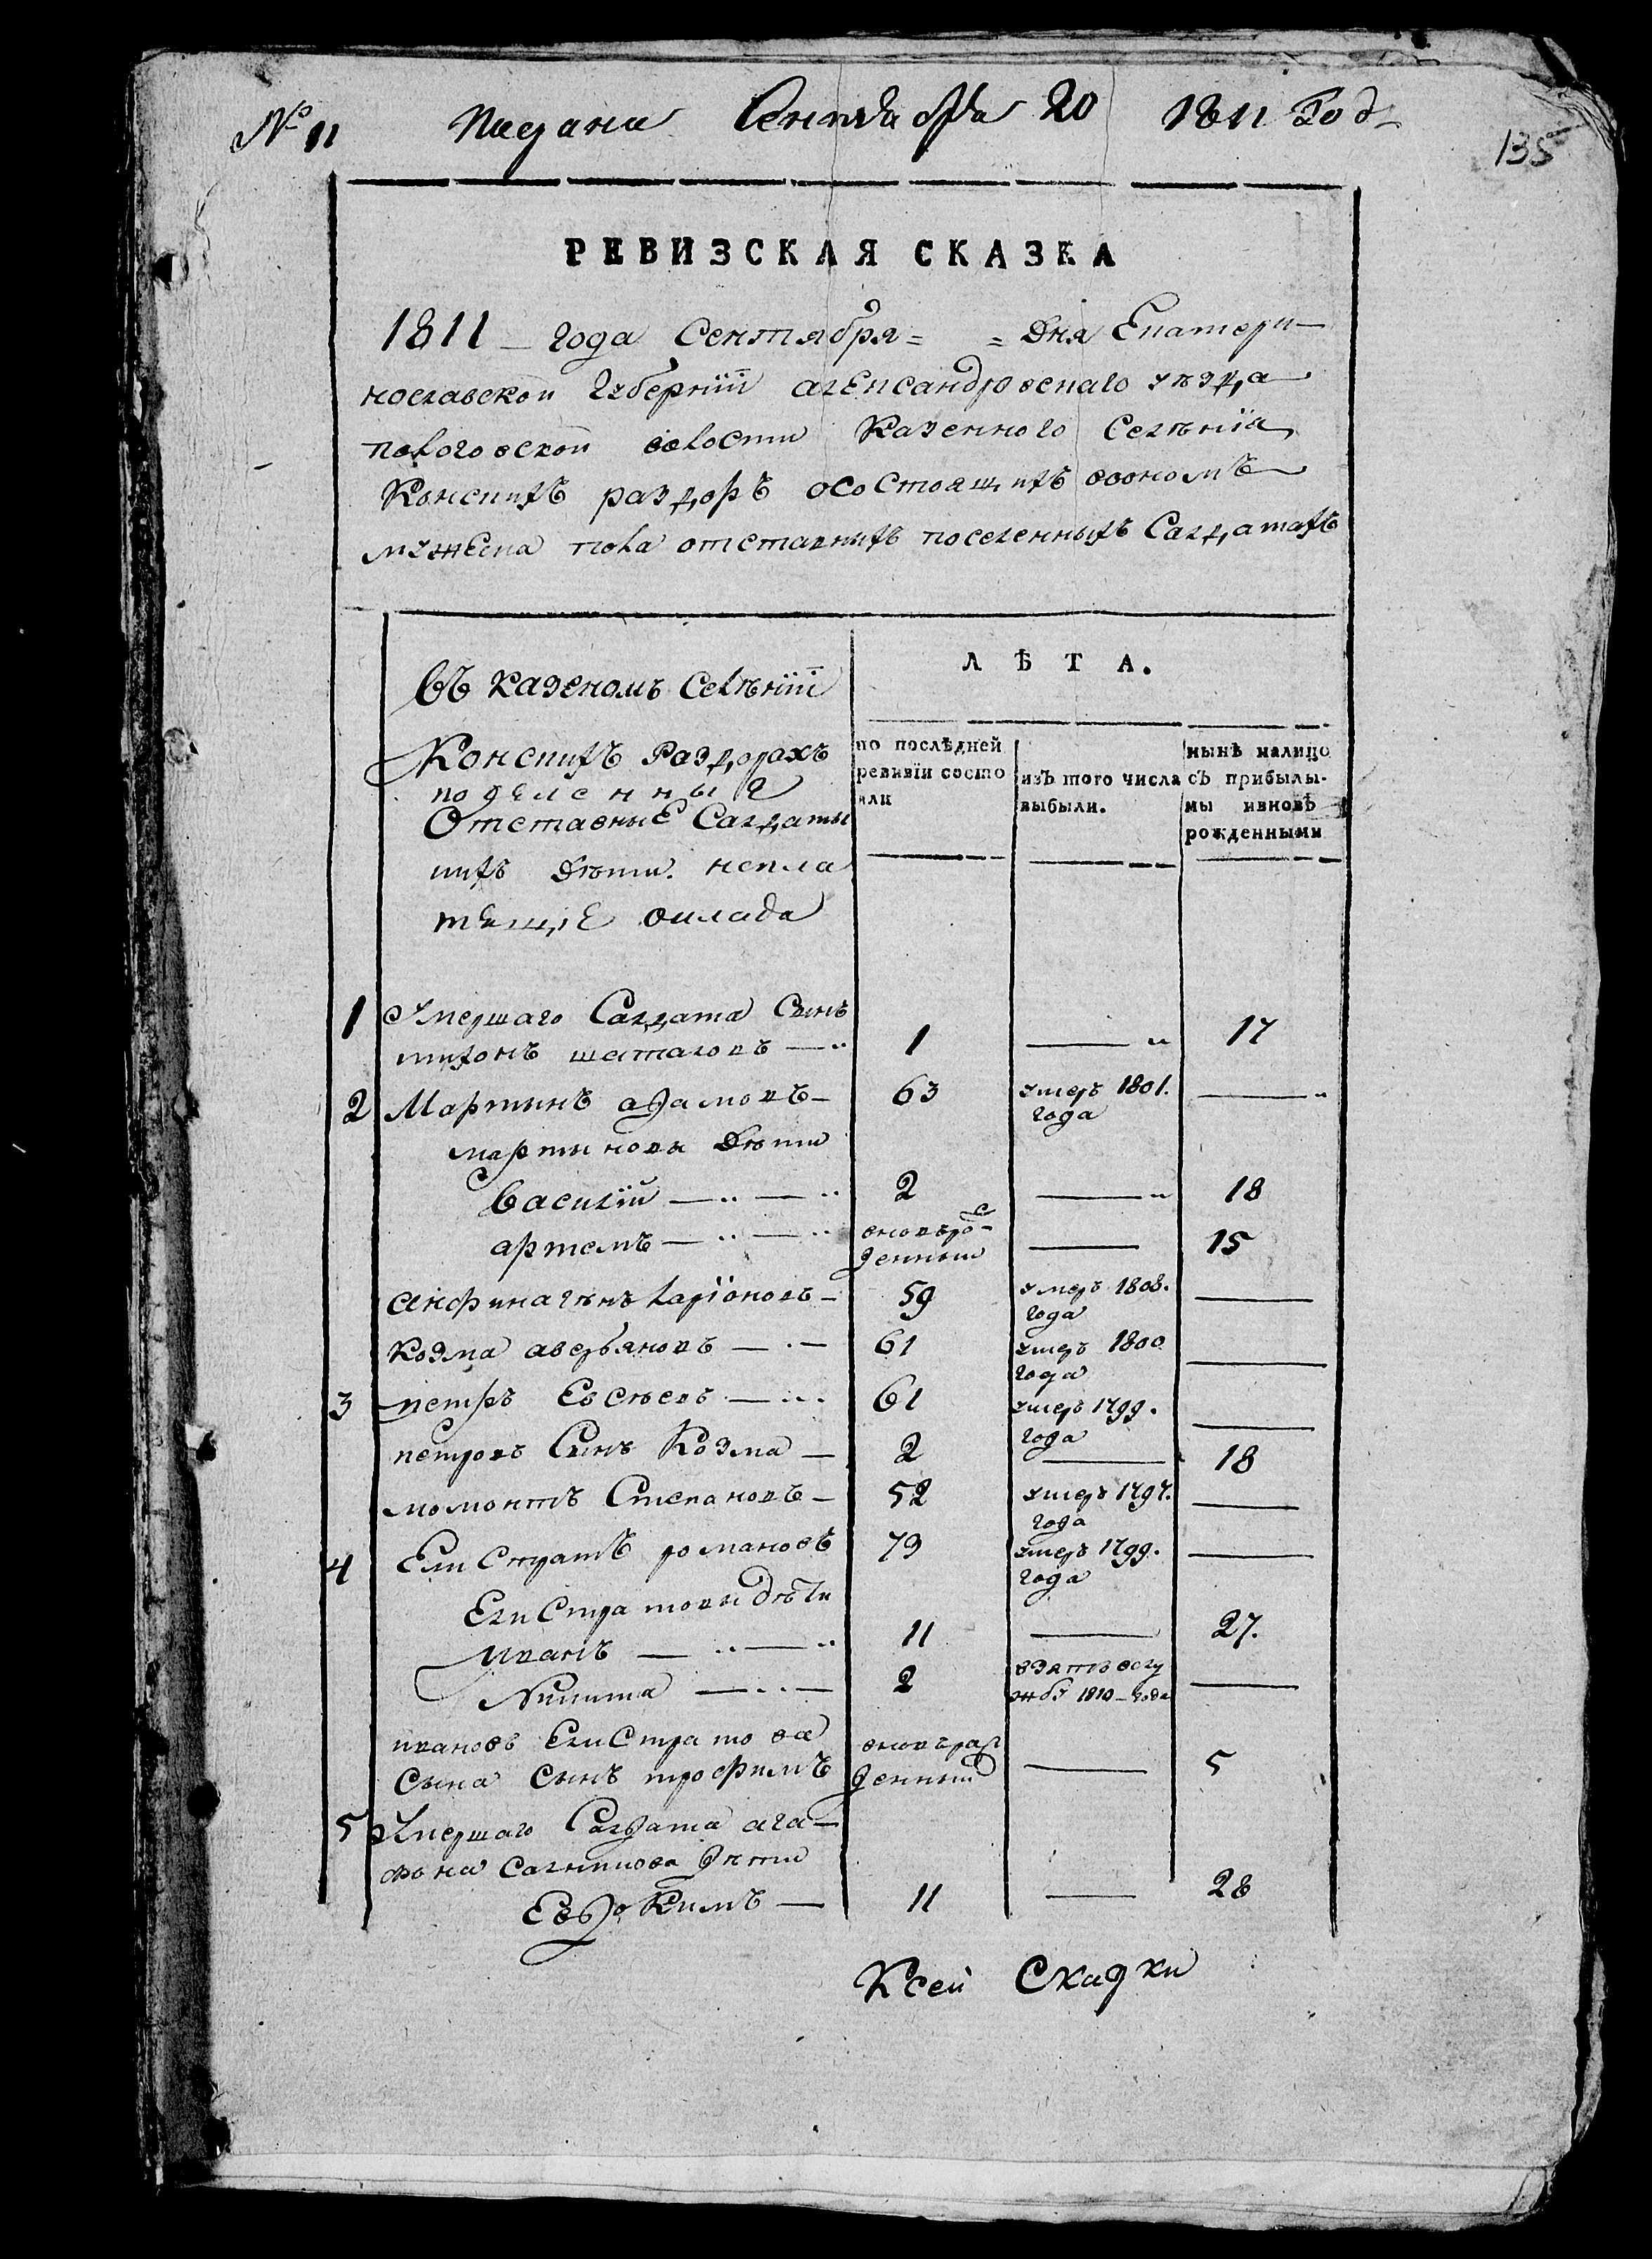 № 11 Подана Сентября 20 1811 Год
135
РЕВИЗСКАЯ СКАЗКА
1811 — года Сентября = = Дня Екатери—
нославской губернїи александровскаго уѣзда
пологовской волости Казенного Селѣнїя
Конскихъ раздоръ осостоящихъ воономъ
мужеска пола отставныхъ поселенныхъ Салдатахъ
Въ казеномъ Селѣнїи
Конскихъ Раздорахъ
поселенные
Отставные Салдаты
ихъ Дѣти. непла
тящiе оклада
ЛѢТА.
по послѣдней
ревизїи состо
яли
изъ того числа
выбыли.
нынѣ налицо
съ прибылы-
мы ивновѣ
рожденными
1 Умершаго Салдата Сынъ
тихонъ шаталовъ — 1 — 17
2 Мартинъ адамовъ — 63 умеръ 1801. —
года
мартинова Дѣти
Василїй — 2 — 18
артемъ — вновъро- — 15
жденный
анфиногѣнъ Ларїоновъ — 59 умеръ 1808. —
года
Козма аверьяновъ — 61 умеръ 1800 —
года
3 петръ Евсѣевъ — 61 умеръ 1799. —
года
петровъ Сынъ Козма — 2 — 18
момонтъ Степановъ — 52 умеръ 1797. —
года
4 ЕлиСтратъ романовъ 79 умеръ 1799. —
года
ЕлиСтратовы дѣти
Иванъ — 11 — 27.
Никита — 2 взятъ вслу —
жбу 1810 — года
ивановъ ЕлиСтратова вновъраж
Сына Сынъ трофимъ денный — 5
5 Умершаго Салдата ага—
фона Салникова дѣти
Евдокимъ — 11 — 28
Ксей Сказки